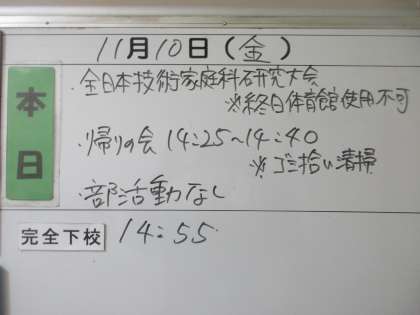 11月10日(金)
本日
・全日本技術家庭科研究大会
※終日体育館使用不可
・帰りの会 14:25~14:40
※ゴミ拾い清掃
・部活動なし
完全下校 14:55